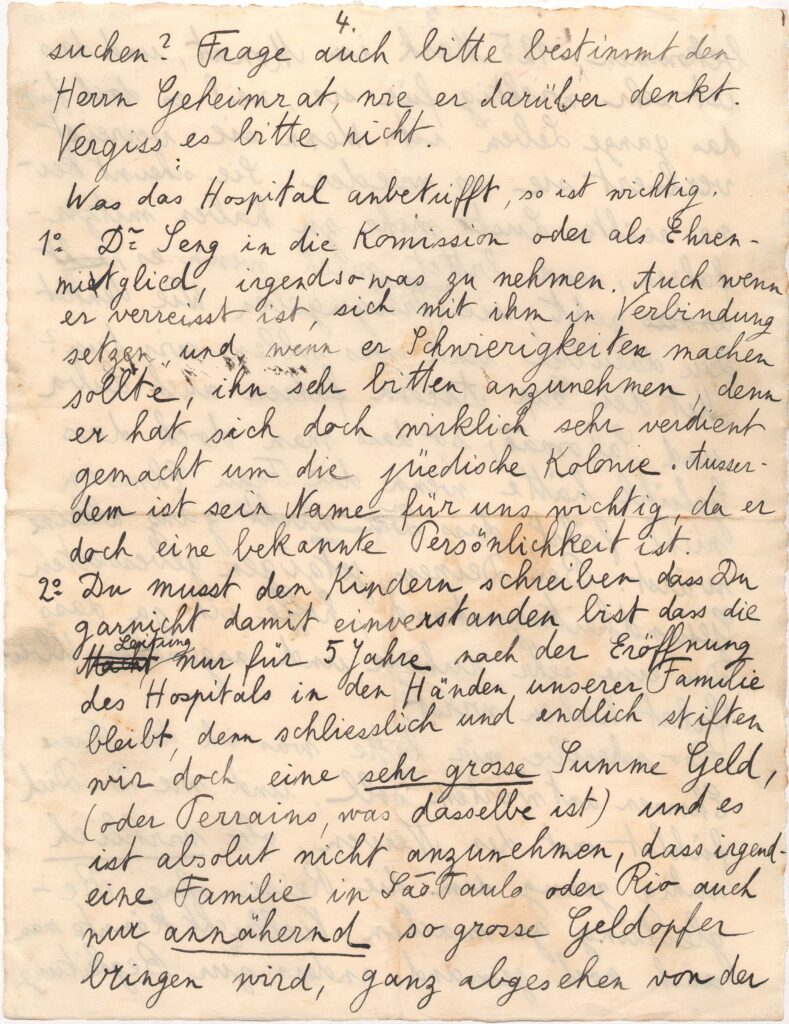 4.
suchen? Frage auch bitte bestimmt den
Herrn Geheimrat, wie er darüber denkt.
Vergiss es bitte nicht.
Was das Hospital anbetrifft, so ist wichtig.
1º Dr Seng in die Komission oder als Ehren-
mitglied, irgendsowas zu nehmen. Auch wenn
er verreisst ist, sich mit ihm in Verbindung
setzen, und, wenn er Schwierigkeiten machen
sollte, ihn sehr bitten anzunehmen, denn
er hat sich doch wirklich sehr verdient
gemacht um die jüedische Kolonie. Ausser-
dem ist sein Name für uns wichtig, da er
doch eine bekannte Persönlichkeit ist.
2º Du musst den Kindern schreiben dass Du
garnicht damit einverstanden bist dass die
Leitung
Macht nur für 5 Jahre nach der Eröffnung
des Hospitals in den Händen unserer Familie
bleibt, denn schliesslich und endlich stiften
wir doch eine sehr grosse Summe Geld,
(oder Terrains, was dasselbe ist) und es
ist absolut nicht anzunehmen, dass irgend-
eine Familie in São Paulo oder Rio auch
nur annähernd so grosse Geldopfer
bringen wird, ganz abgesehen von der